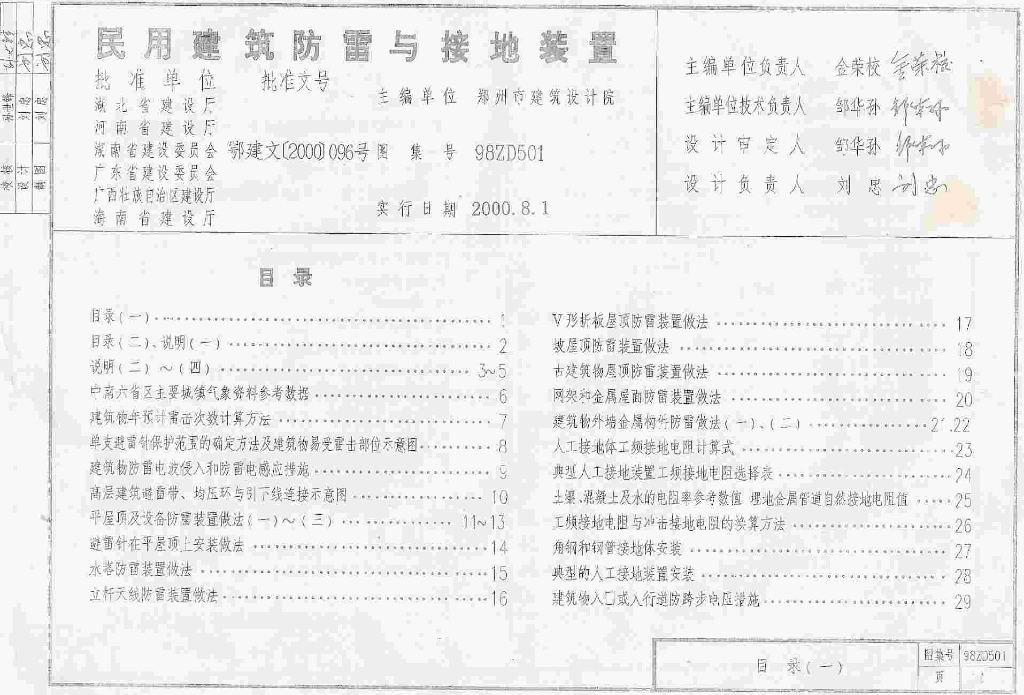 民用建筑防雷与接地装置
批准单位 批准文号
湖北省建设厅
河南省建设厅
湖南省建设委员会 鄂建文[2000]096号
广东省建设委员会
广西壮族自治区建设厅
海南省建设厅
主编单位 郑州市建筑设计院
图集号 98ZD501
实行日期 2000.8.1
主编单位负责人 金荣校
主编单位技术负责人 邹华孙
设计审定人 邹华孙
设计负责人 刘思
目录
目录(一) 1
目录(二)、说明(一) 2
说明(二)~(四) 3~5
中南六省区主要城镇气象资料参考数据 6
建筑物年预计雷击次数计算方法 7
单支避雷针保护范围的确定方法及建筑物易受雷击部位示意图 8
建筑物防雷电波侵入和防雷电感应措施 9
高层建筑避雷带、均压环与引下线连接示意图 10
平屋顶及设备防雷装置做法(一)~(三) 11~13
避雷针在平屋顶上安装做法 14
水塔防雷装置做法 15
立杆天线防雷装置做法 16
V形折板屋顶防雷装置做法 17
坡屋顶防雷装置做法 18
古建筑物屋顶防雷装置做法 19
网架和金属屋面防雷装置做法 20
建筑物外墙金属构件防雷做法(一)、(二) 21.22
人工接地体工频接地电阻计算式 23
典型人工接地装置工频接地电阻选择表 24
土壤、混凝土及水的电阻率参考数值 埋地金属管道自然接地电阻值 25
工频接地电阻与冲击接地电阻的换算方法 26
角钢和钢管接地体安装 27
典型的人工接地装置安装 28
建筑物入口或人行道防跨步电压措施 29
目录(一)
图集号 98ZD501
页 1